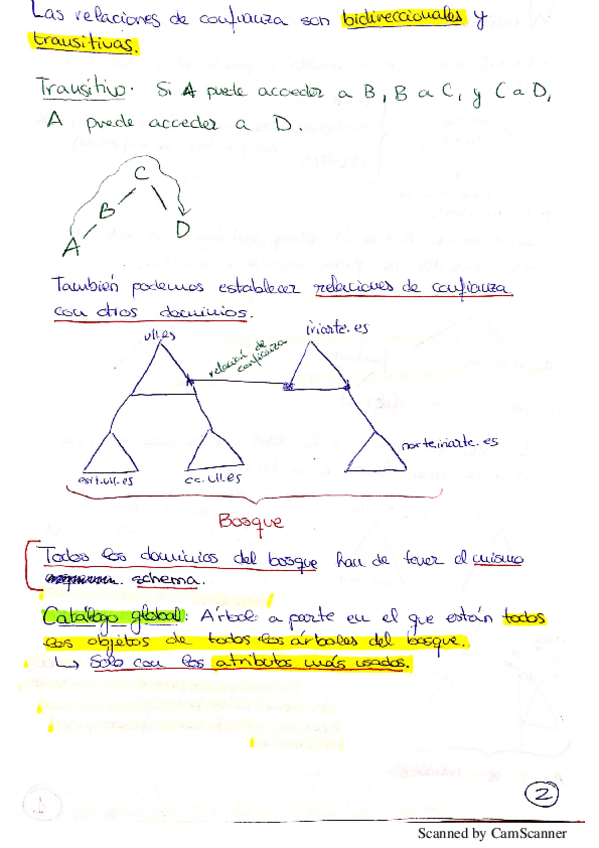 Las relaciones de confianza son bidireccionales y
transitivas.
Transitivo. Si A puede acceder a B, B a C, y C a D,
A puede acceder a D.
C
B
D
A
También podemos establecer relaciones de confianza
con otros dominios.
ull.es
iriarte.es
relación de
confianza
norte.iriarte.es
esit.ull.es
cc.ull.es
Bosque
Todos los dominios del bosque han de tener el mismo
schema.
Catálogo global: Árbol a parte en el que están todos
los objetos de todos los árboles del bosque.
↳ Solo con los atributos más usados.
2
Scanned by CamScanner